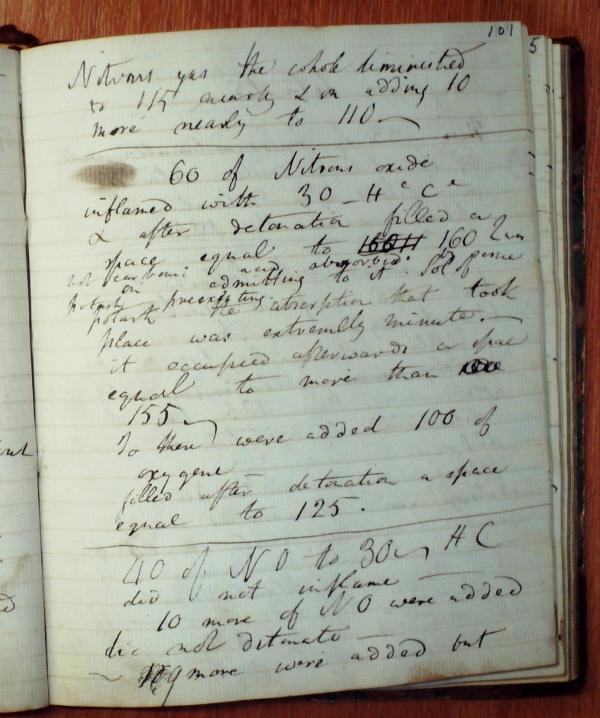 101
5
Nitrous gas the whole diminished
to 115 nearly & on adding 10
more nearly to 110
60 of Nitrous oxide
inflamed with 30 - H e C e
& after detonation filled a
space equal to 160
not carbonic acid absorbed.
potash on admitting to it Sol of pure
potash preexisting the absorption that took
place was extremely minute. -
it occupied afterwards a space
equal to more than
155
To these were added 100 of
oxygene
filled after detonation a space
equal to 125.
40 of N O to 30 H C
did not inflame -
10 more of N O were added
did not detonate -
9 more were added but